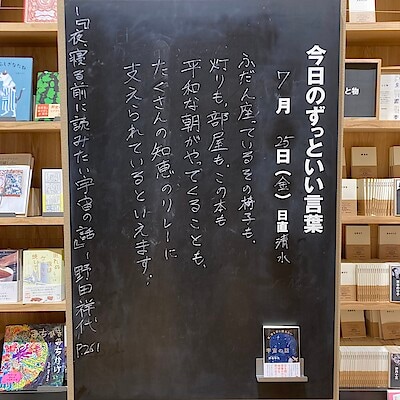 今日のずっといい言葉
7月25日(金)日直 清水
ふだん座っているその椅子も、
灯りも、部屋も、この本も
平和な朝がやってくることも、
たくさんの知恵のリレーに
支えられているといえます…
―『夜、寝る前に読みたい宇宙の話』― 野田祥代 P.261
宇宙の話